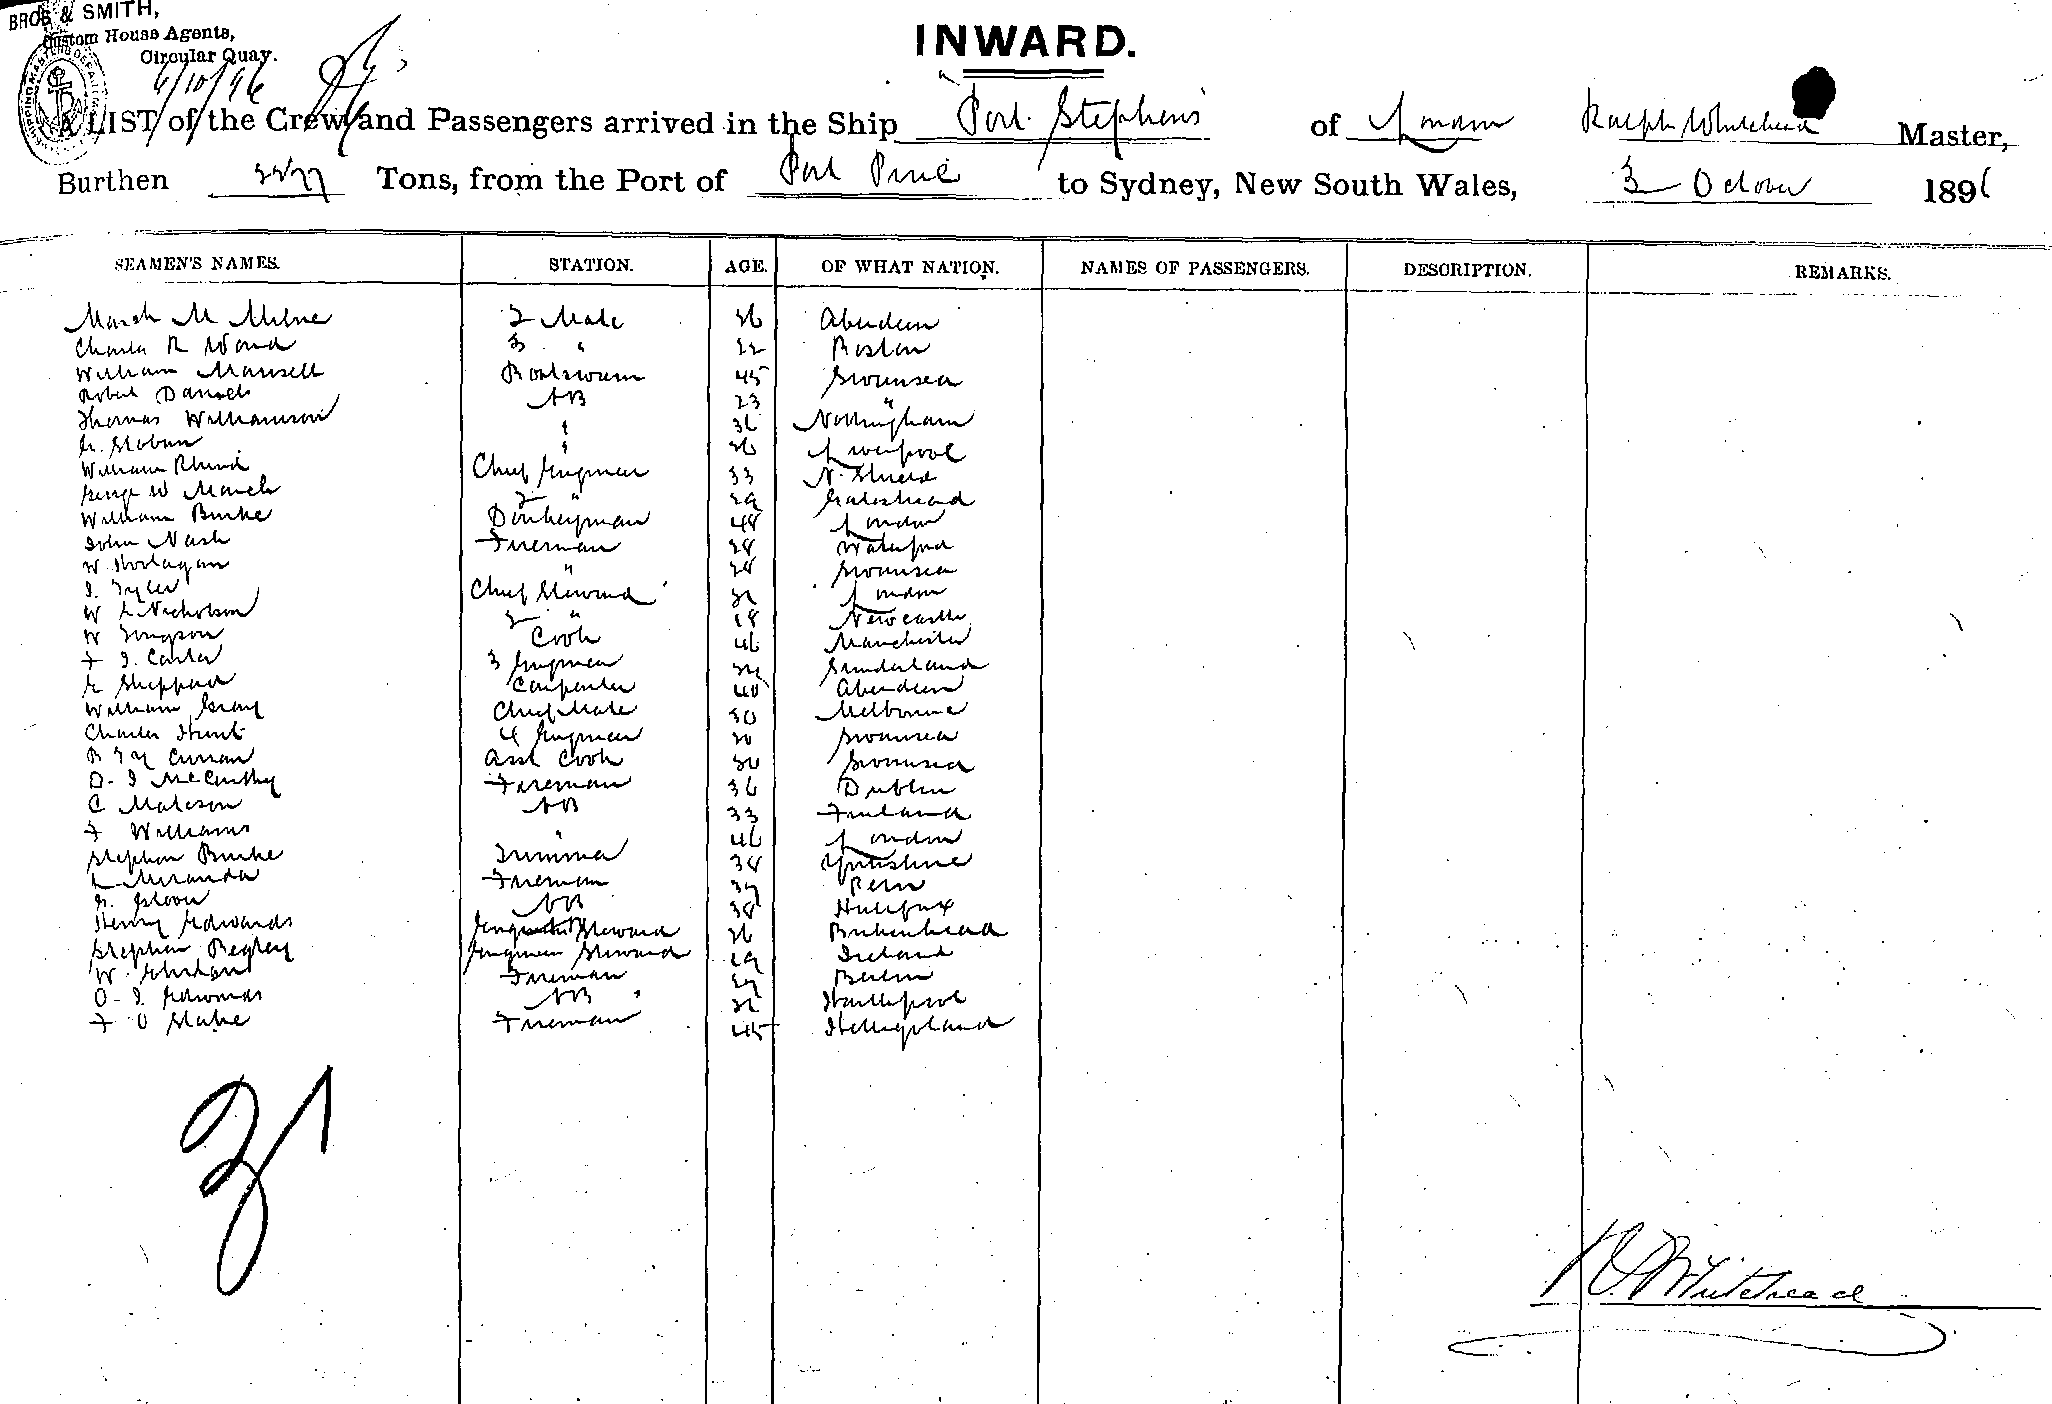 BROS & SMITH,
Custom House Agents,
Circular Quay.
6/10/96
INWARD.
A LIST of the Crew and Passengers arrived in the Ship Port Stephens of London Ralph Whitehead Master,
Burthen Tons, from the Port of Port Pirie to Sydney, New South Wales, 3 October 1896
SEAMEN'S NAMES. STATION. AGE. OF WHAT NATION. NAMES OF PASSENGERS. DESCRIPTION. REMARKS.
M Milne 2 Mate 36 Aberdeen
Charles R Ward 3 " 22 Boston
William Mansell Boatswain 45 Swansea
Robert Daniels AB 23 "
Thomas Williamson " 36 Nottingham
" 26 Liverpool
William Rhind Chief Engineer 33 N. Shield
George W March 2 " 29 Gateshead
William Burke Donkeyman 48 London
John Nash Fireman 28 Waterford
W. " 28 Swansea
J. Tyler Chief Steward London
W Nicholson 2 " 18 Newcastle
W Simpson Cook 46 Manchester
F J. Carter 3 Engineer Sunderland
Sheppard Carpenter 40 Aberdeen
William Gray Chief Mate 30 Melbourne
Charles Hunt 4 Engineer 30 Swansea
Curran Asst Cook 30 Swansea
D. J McCarthy Fireman 36 Dublin
C Mateson AB 33 Finland
F Williams " 46 London
Stephen Burke Trimmer 38 Yorkshire
L Miranda Fireman 37 Peru
AB 38 Halifax
Henry Edwards Steward 26 Birkenhead
Stephen Begley Engineers Steward 19 Ireland
W. Fireman 27 Berlin
O. J. Edwards AB Hartlepool
F O Stake Fireman 45 Heligoland
31
R. Whitehead